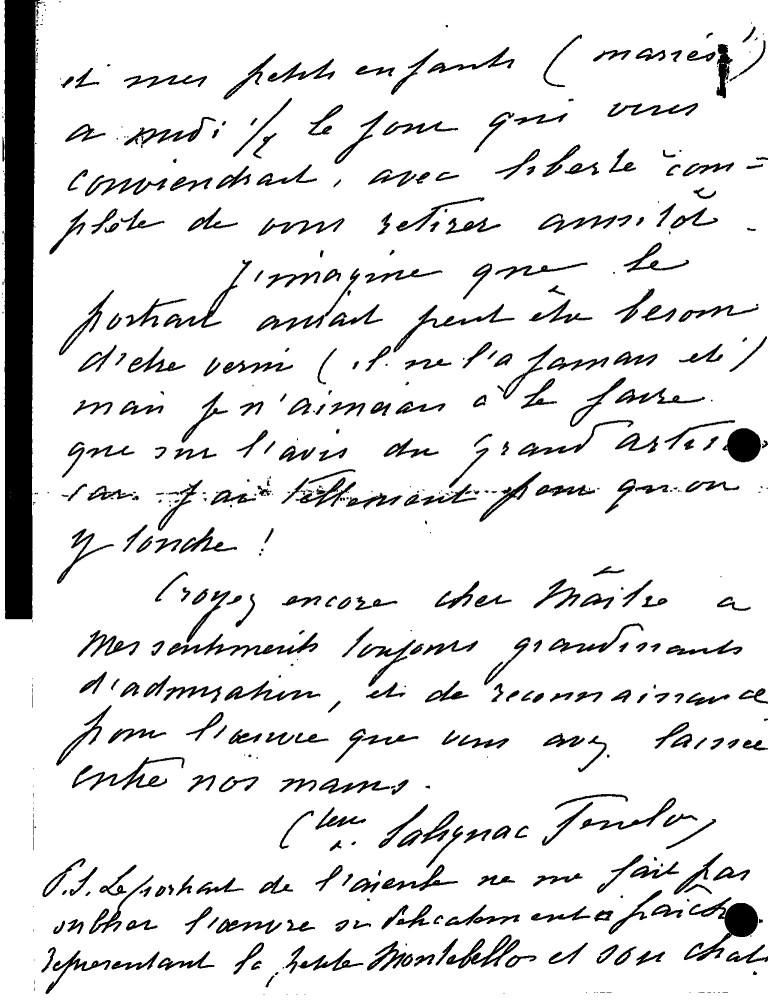 et mes petits enfants (mariés!)
a midi ½ le jour qui vous
conviendrait, avec liberté com=
plète de vous retirer aussitôt.
J'imagine que le
portrait aurait peut être besoin
d'être verni (il ne l'a jamais été)
mais je n'aimerais à le faire
que sur l'avis du grand
car j'ai tellement peur qu'on
y touche!
Croyez encore cher Maître a
mes sentiments toujours grandissants
d'admiration, et de reconnaissance
pour l'œuvre que vous avez laissée
entre nos mains.
Salignac Fenelon
P.S. Le portrait de l'aieule ne me fait pas
oublier l'œuvre si délicatement
représentant la petite Montebello et son chat